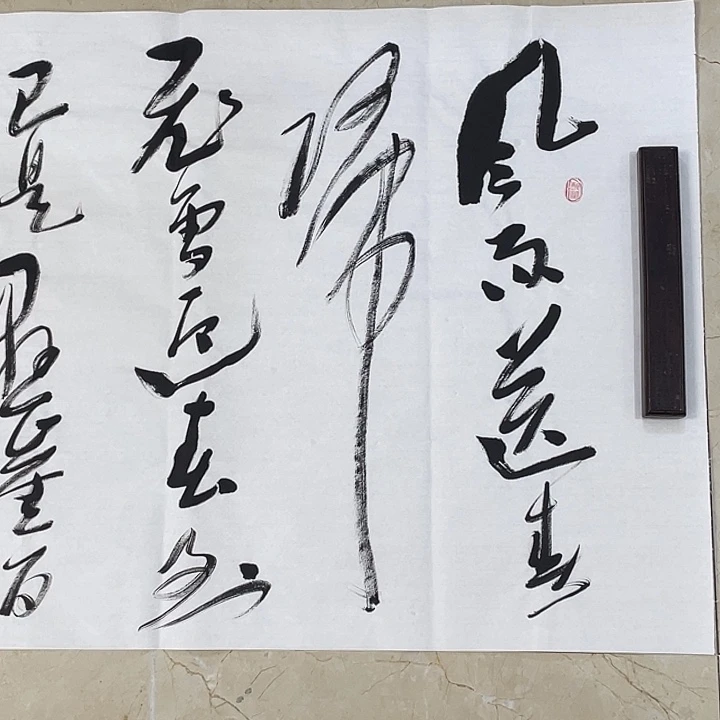 风雨送春
归
飞雪迎春到
已是悬崖百